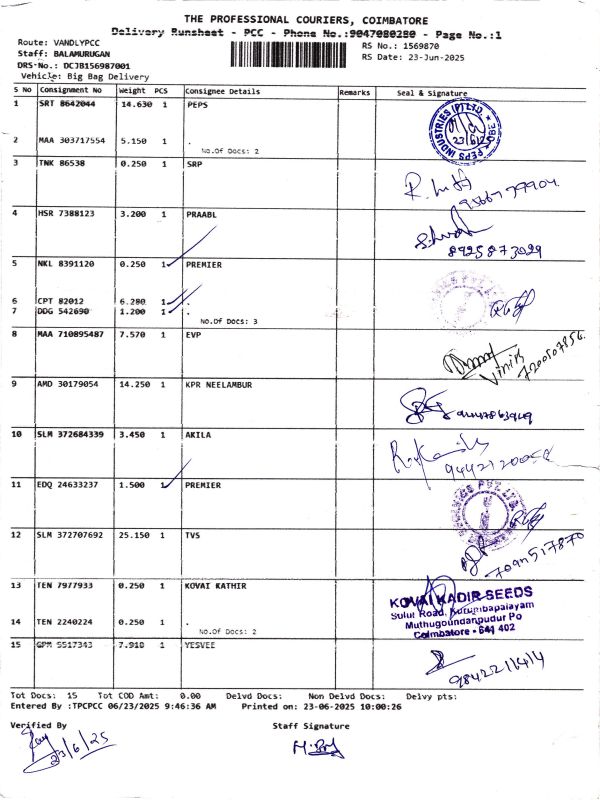 THE PROFESSIONAL COURIERS, COIMBATORE
Delivery Runsheet - PCC - Phone No.:9047080280 - Page No.:1
Route: VANDLYPCC
Staff: BALAMURUGAN
DRS No.: DCJB156987001
Vehicle: Big Bag Delivery
RS No.: 1569870
RS Date: 23-Jun-2025
S No Consignment No Weight PCS Consignee Details Remarks Seal & Signature
1 SRT 8642044 14.630 1 PEPS
2 MAA 303717554 5.150 1 .
No.Of Docs: 2
PEPS INDUSTRIES (P) LTD.
23/6/25
3 TNK 86538 0.250 1 SRP
4 HSR 7388123 3.200 1 PRAABL
8925873029
5 NKL 8391120 0.250 1 PREMIER
6 CPT 82012 6.280 1 .
7 DDG 542690 1.200 1 .
No.Of Docs: 3
8 MAA 710895487 7.570 1 EVP
9 AMD 30179054 14.250 1 KPR NEELAMBUR
10 SLM 372684339 3.450 1 AKILA
11 EDQ 24633237 1.500 1 PREMIER
12 SLM 372707692 25.150 1 TVS
7094517870
13 TEN 7977933 0.250 1 KOVAI KATHIR
14 TEN 2240224 0.250 1 .
No.Of Docs: 2
KOVAI KADIR SEEDS
Sulur Road, Kurumbapalayam
Muthugoundanpudur Po
Coimbatore - 641 402
15 GPM 5517343 7.910 1 YESVEE
Tot Docs: 15 Tot COD Amt: 0.00 Delvd Docs: Non Delvd Docs: Delvy pts:
Entered By :TPCPCC 06/23/2025 9:46:36 AM Printed on: 23-06-2025 10:00:26
Verified By Staff Signature
23/6/25